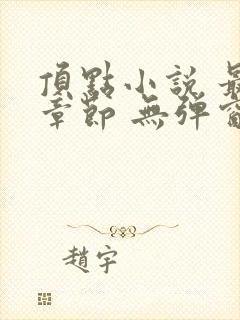 頂點小說
章節 無彈
趙宇